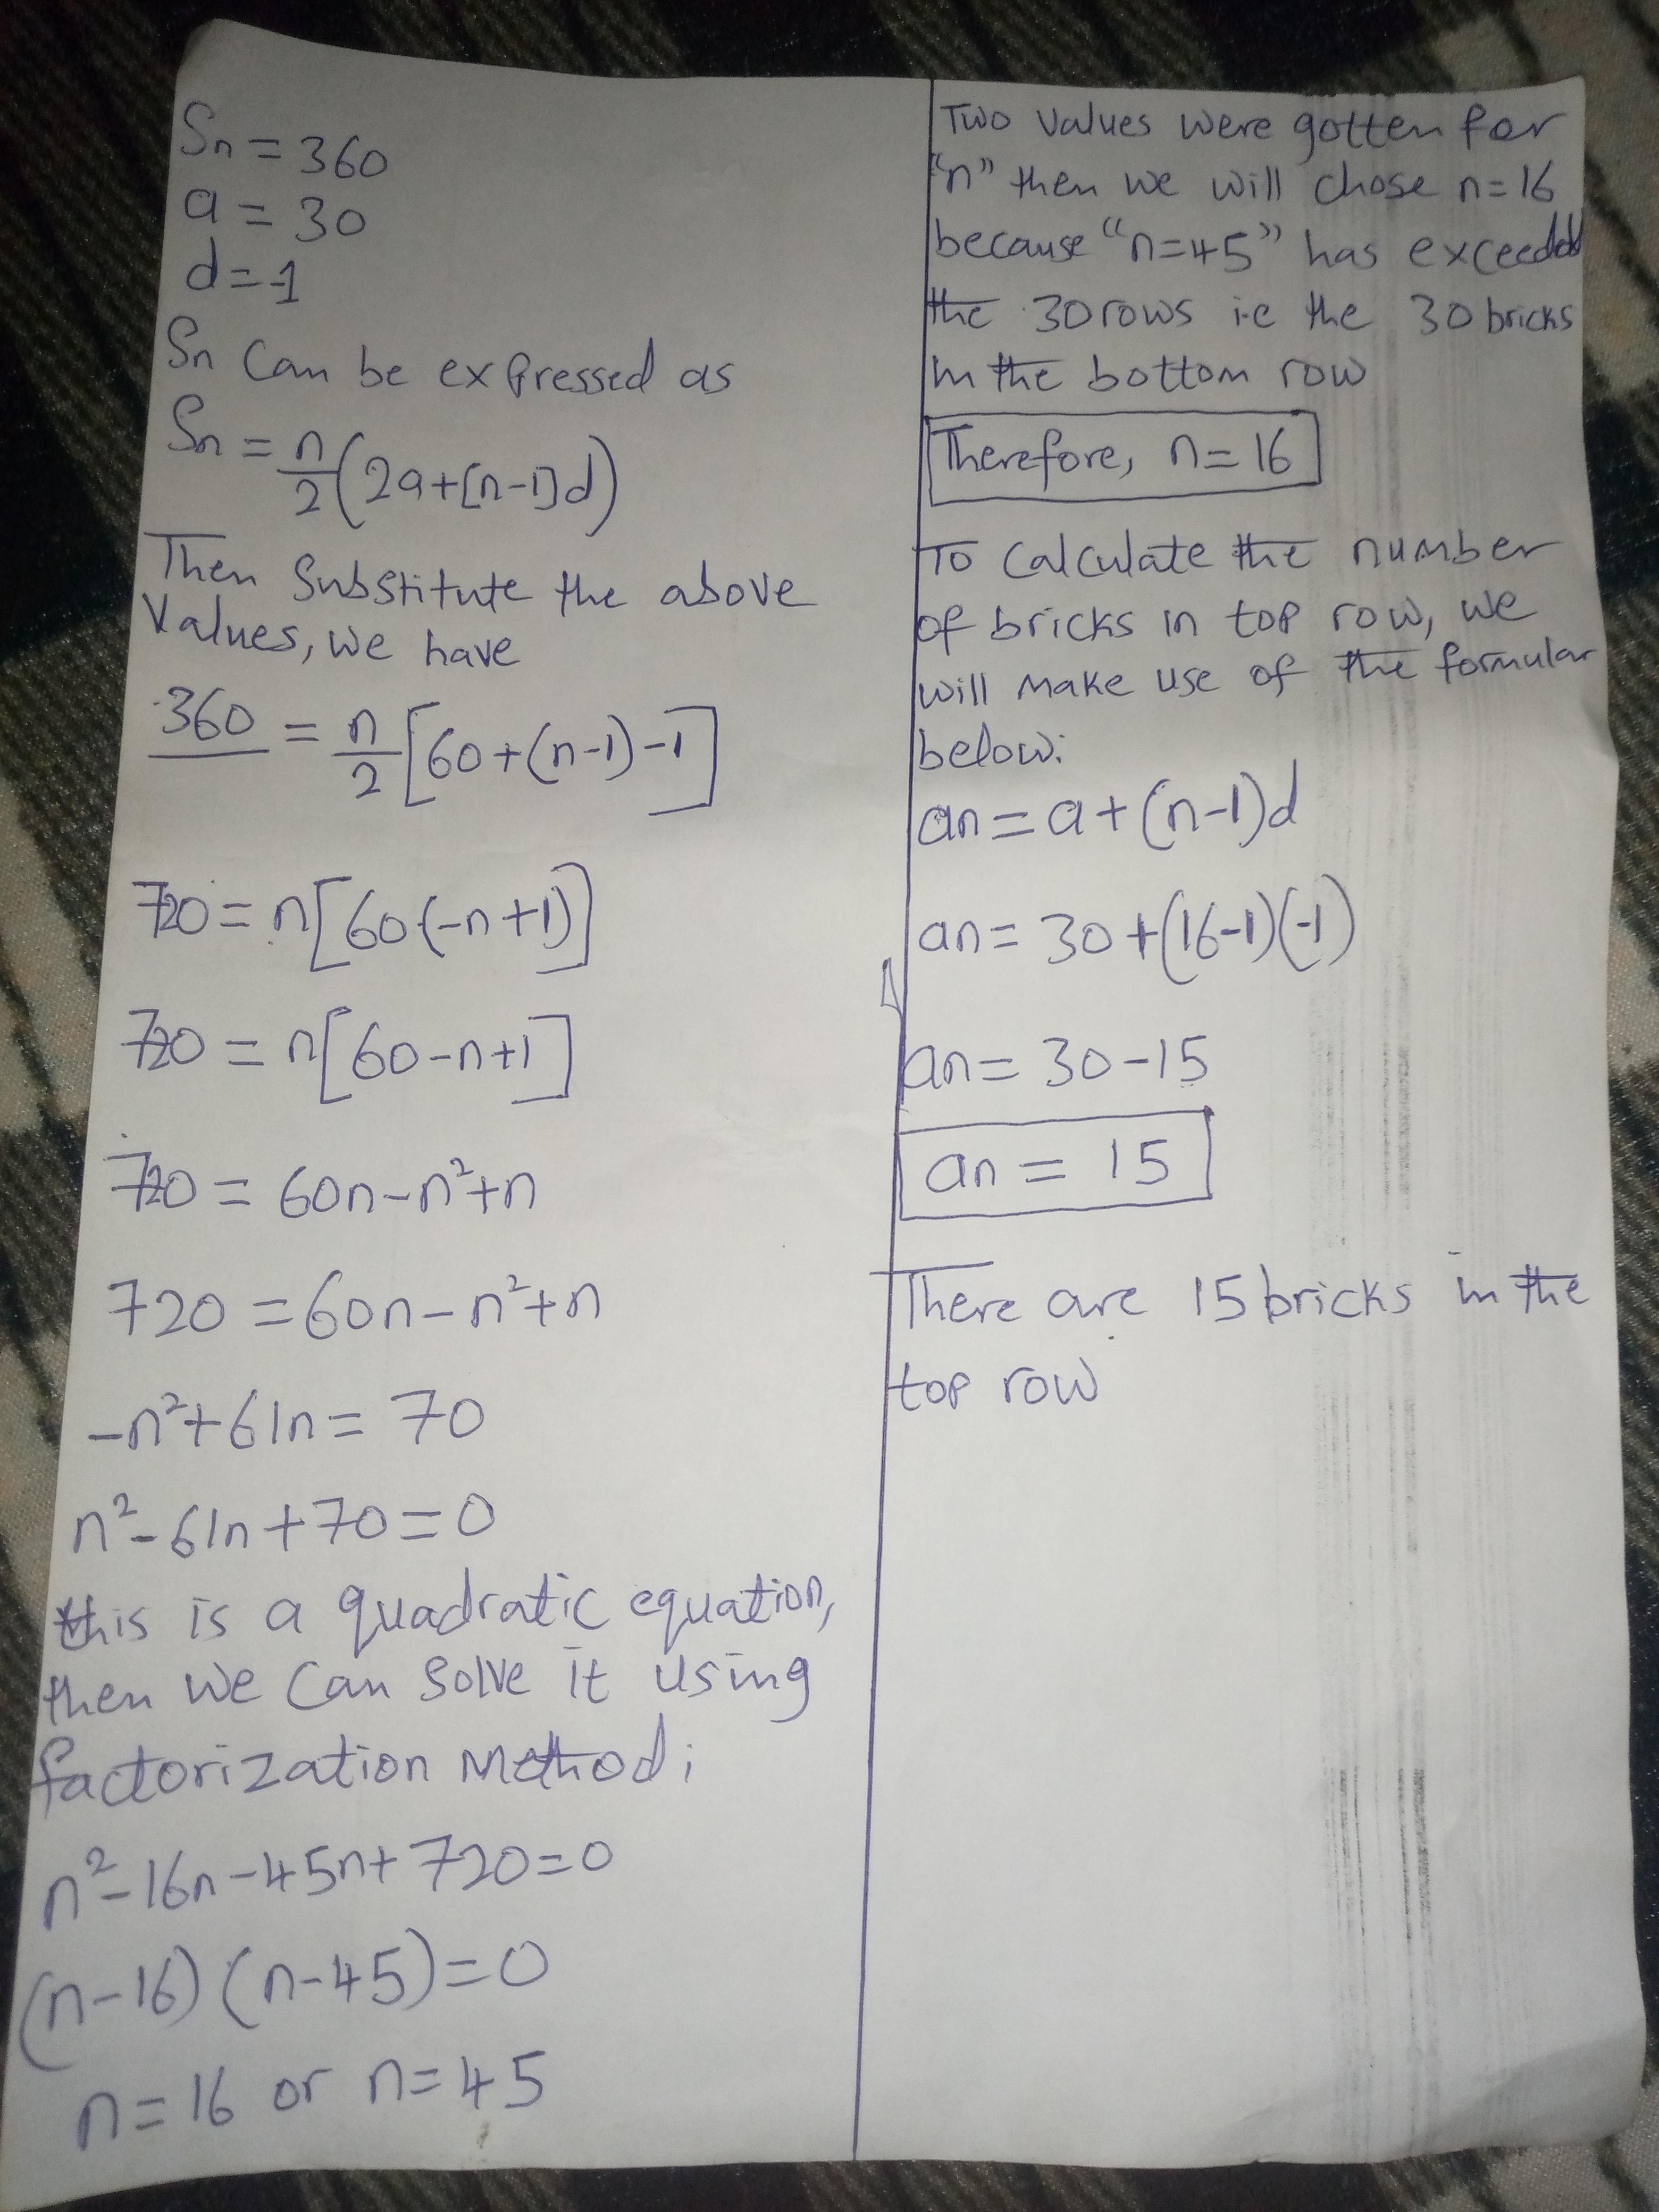 Sn = 360
a = 30
d = -1
Sn can be expressed as
Sn = n/2 (2a+[n-1]d)
Then substitute the above
values, we have
360 = n/2 [60+(n-1)-1]
720 = n[60(-n+1)]
720 = n[60-n+1]
720 = 60n-n²+n
720 = 60n-n²+n
-n²+61n = 70
n²-61n+70=0
this is a quadratic equation,
then we can solve it using
factorization method;
n²-16n-45n+720=0
(n-16)(n-45)=0
n=16 or n=45
Two values were gotten for
"n" then we will chose n=16
because "n=45" has exceeded
the 30 rows i.e the 30 bricks
in the bottom row
Therefore, n=16
To calculate the number
of bricks in top row, we
will make use of the formular
below:
an = a+(n-1)d
an = 30+(16-1)(-1)
an = 30-15
an = 15
There are 15 bricks in the
top row